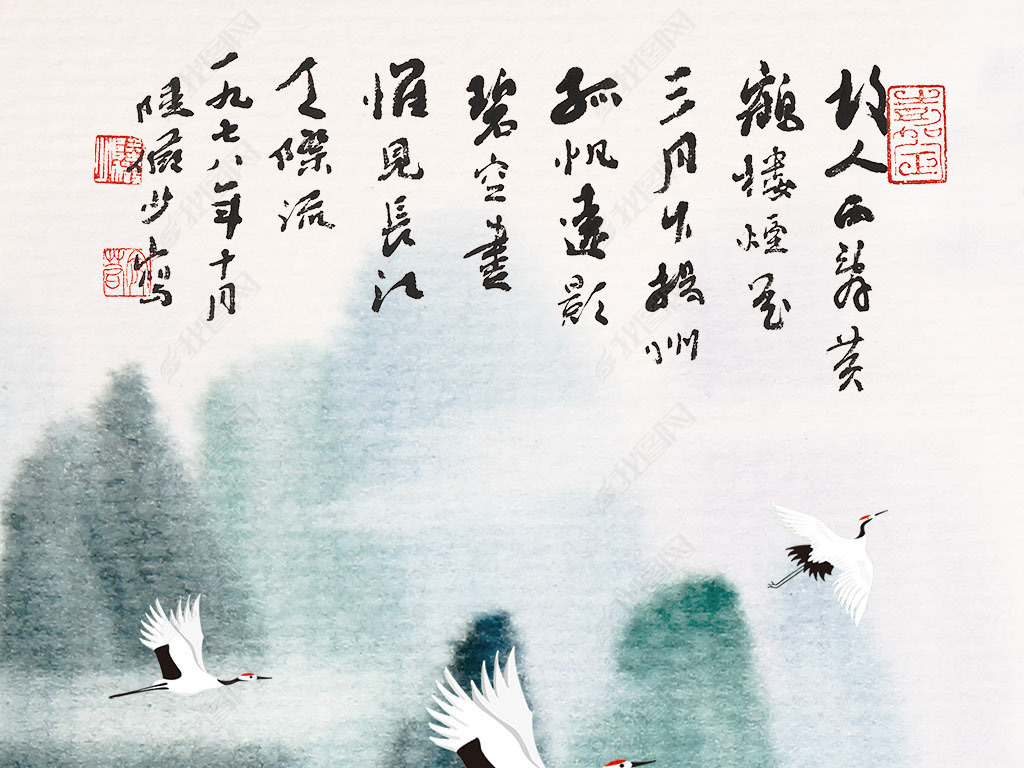 故人西辞黄
鶴楼煙花
三月下揚州
孤帆遠影
碧空盡
惟見長江
天際流
一九七八年十月
陸儼少寫